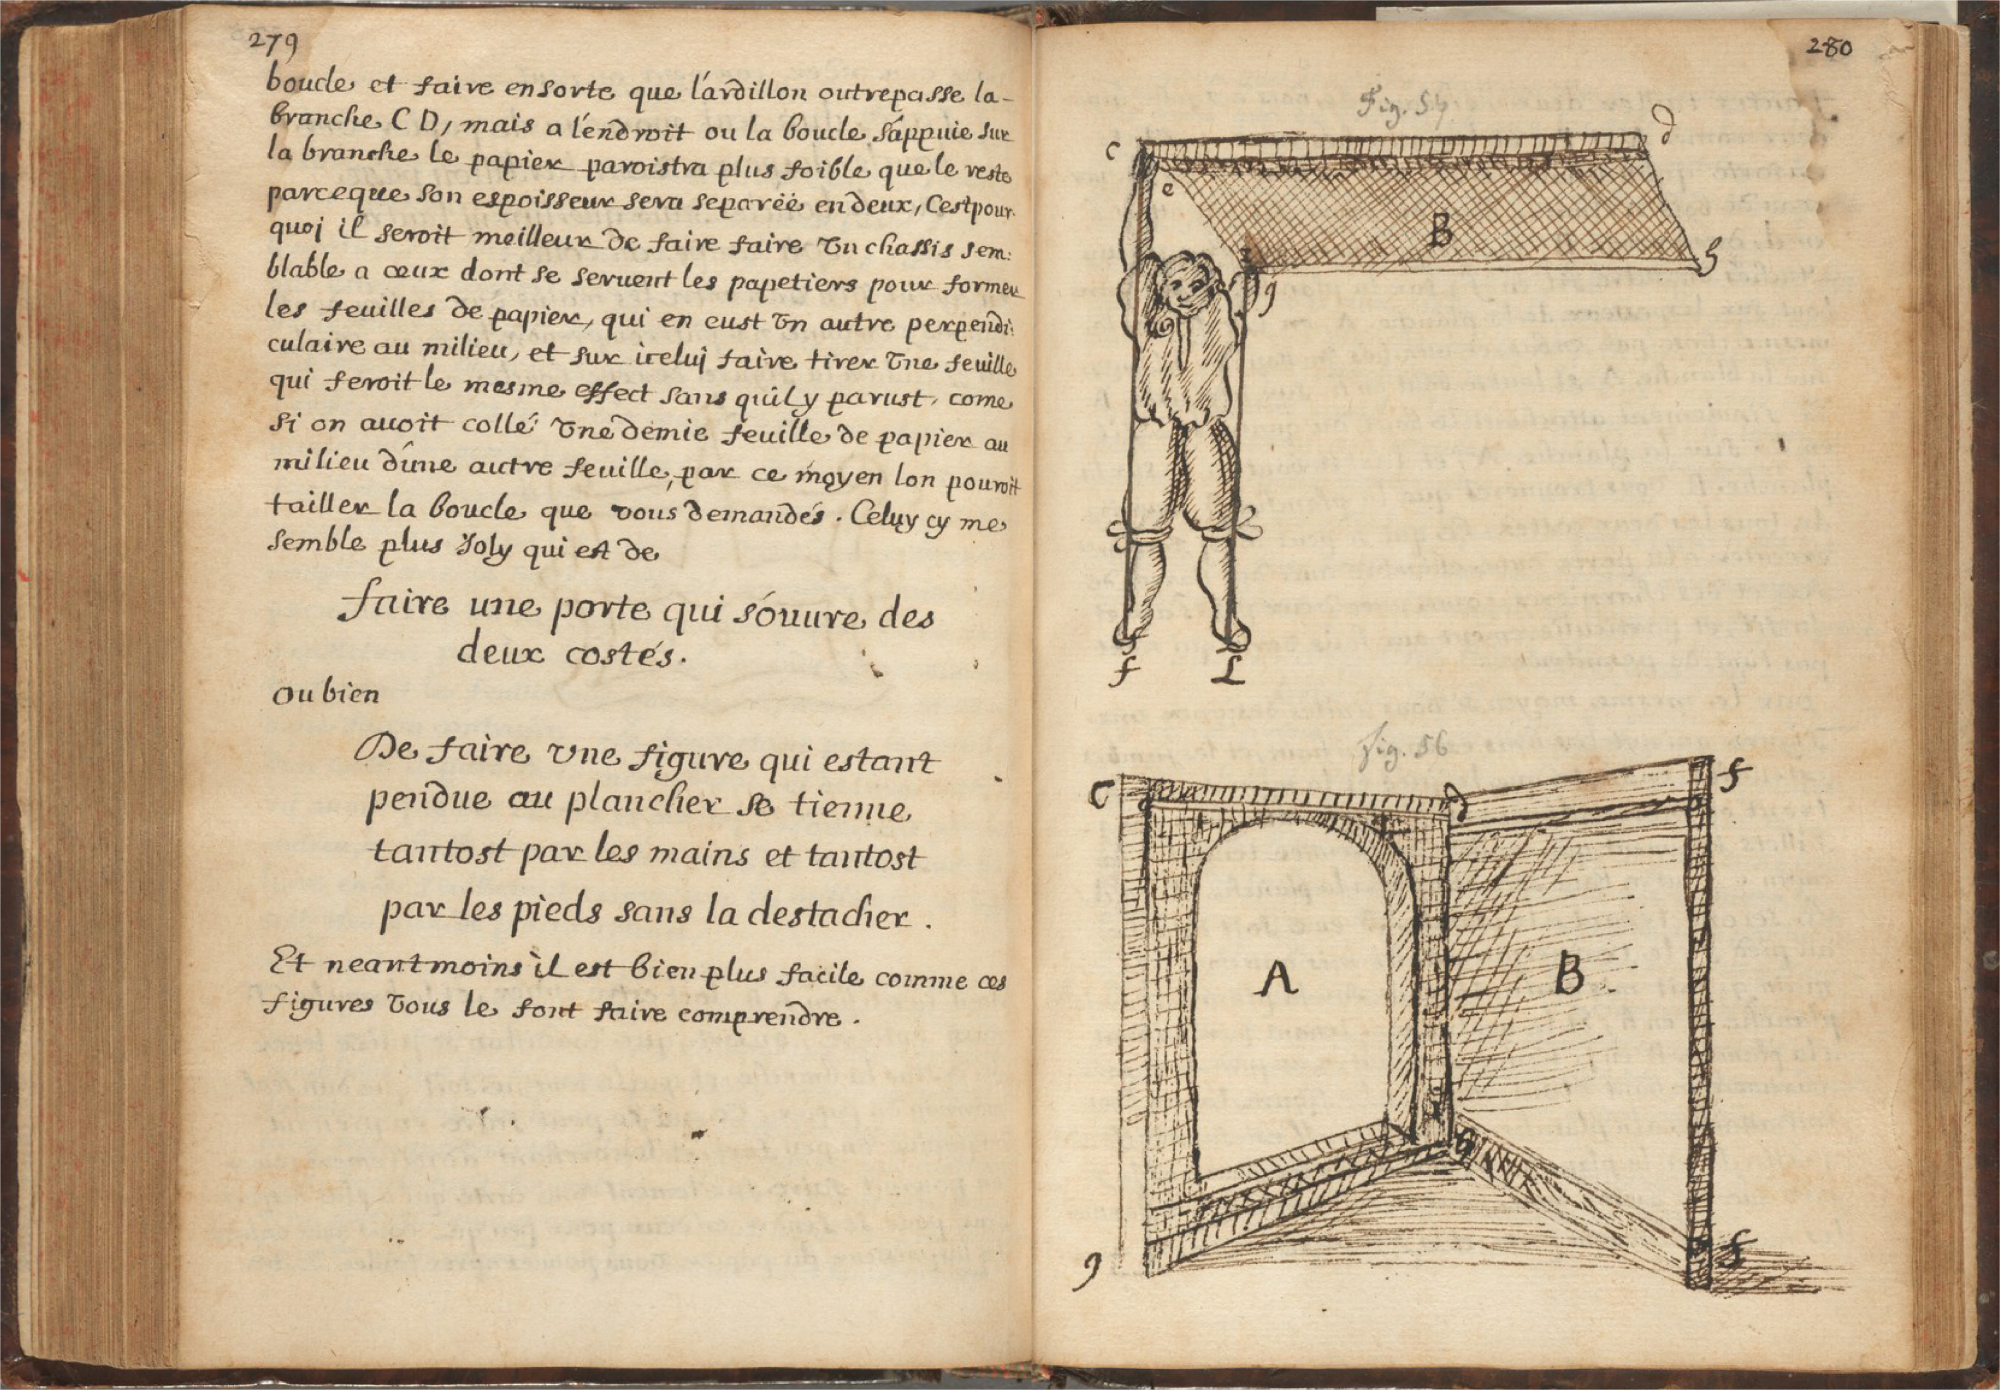 279
boucle et faire ensorte que l'ardillon outrepasse la-
branche C D, mais a l'endroit ou la boucle s'appuie sur
la branche le papier paroistra plus foible que le reste
parceque son espoisseur sera separéé en deux, C'est pour-
quoj il seroit meilleur de faire faire vn chassis sem:
blable a ceux dont se seruent les papetiers pour former
les feuilles de papier, qui en eust vn autre perpendi:
culaire au milieu, et sur iceluj faire tirer vne feuille
qui feroit le mesme effect sans qu'il y parust, come
si on auoit collé vne demie feuille de papier au
milieu d'une autre feuille, par ce moyen lon pouroit
tailler la boucle que vous demandés. Celuy cy me
semble plus Joly qui est de
faire une porte qui s'ouure des
deux costés.
ou bien
De faire vne figure qui estant
pendue au plancher se tienne
tantost par les mains et tantost
par les pieds sans la destacher.
Et neantmoins il est bien plus facile comme ces
figures vous le font faire comprendre.
280
c
d
e
B
h
g
f
L
Fig. 56
C
d
f
A
B
h
g
f